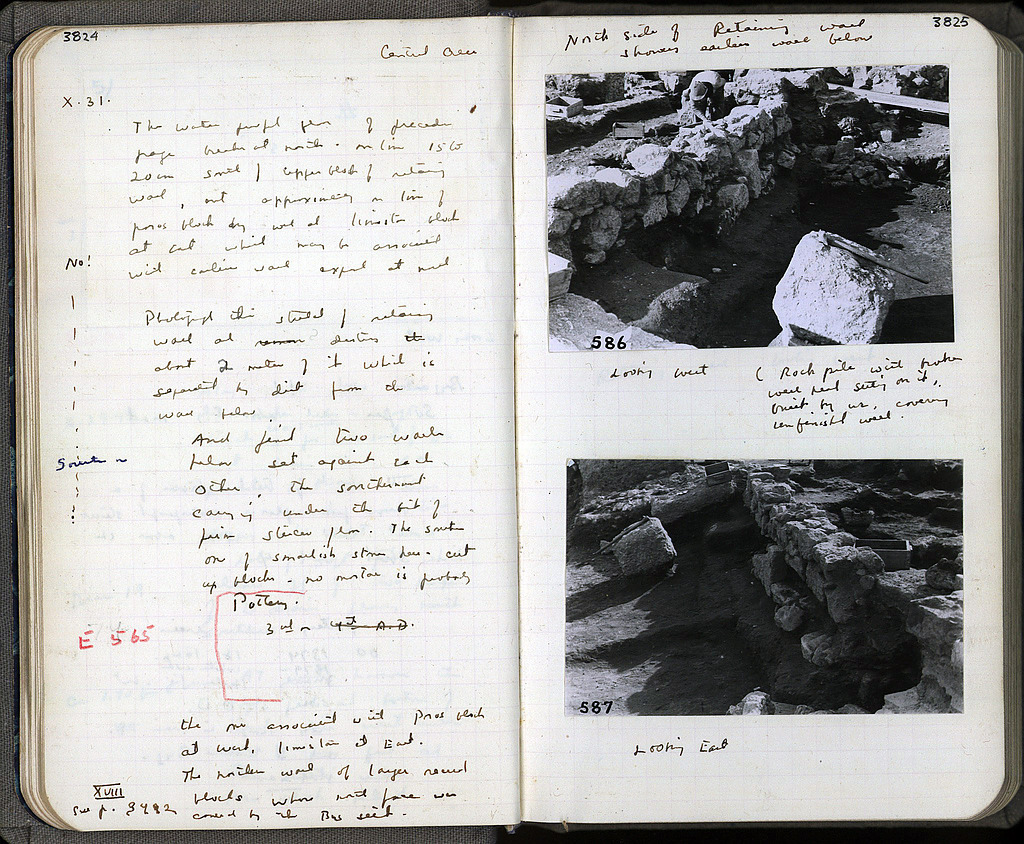 3824
Central Area
X.31.
The water proof floor of preceding
page breaks at north. on line 15 G
20cm south of upper block of retaining
wall, not approximately on line of
poros block by west at limestone block
at east which may be associated
No!
with earlier wall exposed at north
Photograph this stretch of retaining
wall at destroy
about 2 meters of it which is
separated by dirt from the
wall below
And find two walls
Southern
below set against each
other, the southernmost
carrying under the bit of
firm stucco floor. The southern
one of smallish stones
up blocks - no mortar is probably
E 565
Pottery.
3rd 4th A.D.
the one associated with Poros block
at west, limestone at East.
The northern wall of larger
blocks, whose north face was
XVIII
See p.
covered by the
3825
North side of Retaining wall
shows earlier wall below
586
Looking west
( Rock pile with broken
well head set on it,
built by us, covering
unfinished well.
587
Looking East